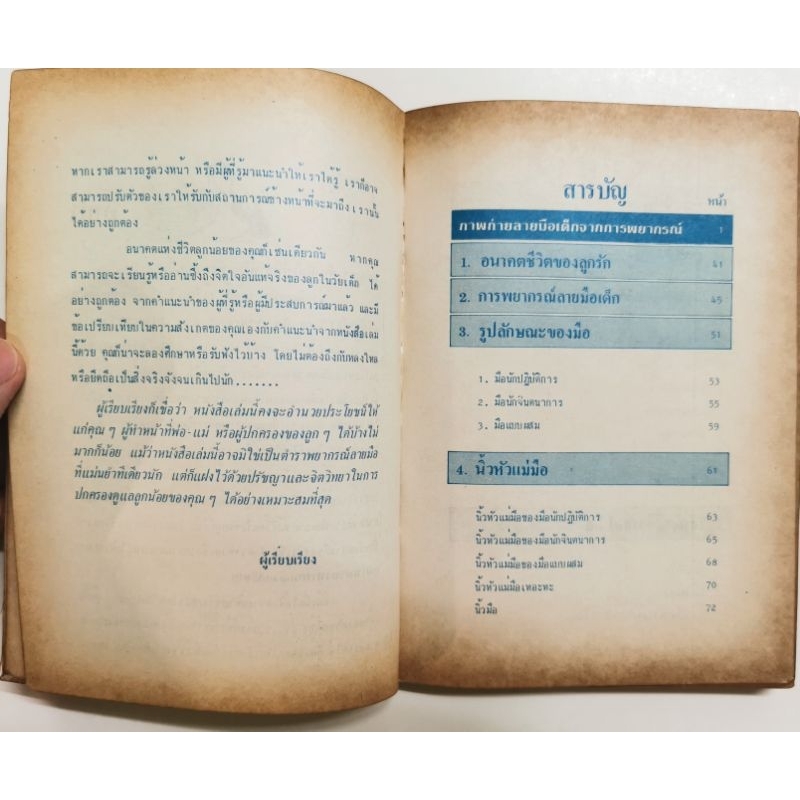 หากเราสามารถรู้ล่วงหน้า หรือมีผู้ที่รู้มาแนะนำให้เราได้รู้ เราก็อาจ
สามารถปรับตัวของเราให้รับกับสถานการณ์ข้างหน้าที่จะมาถึง เรานั้น
ได้อย่างถูกต้อง
อนาคตแห่งชีวิตลูกน้อยของคุณก็เช่นเดียวกัน หากคุณ
สามารถจะเรียนรู้หรืออ่านซึ้งถึงจิตใจอันแท้จริงของลูกในวัยเด็ก ได้
อย่างถูกต้อง จากคำแนะนำของผู้ที่รู้หรือผู้มีประสบการณ์มาแล้ว และมี
ข้อเปรียบเทียบในความสังเกตของคุณเองกับคำแนะนำจากหนังสือเล่ม
นี้ด้วย คุณก็น่าจะลองศึกษาหรือรับฟังไว้บ้าง โดยไม่ต้องถึงกับหลงใหล
หรือยึดถือเป็นสิ่งจริงจังจนเกินไปนัก.......
ผู้เรียบเรียงก็เชื่อว่า หนังสือเล่มนี้คงจะอำนวยประโยชน์ให้
แก่คุณ ๆ ผู้ทำหน้าที่พ่อ-แม่ หรือผู้ปกครองของลูก ๆ ได้บ้างไม่
มากก็น้อย แม้ว่าหนังสือเล่มนี้อาจมิใช่เป็นตำราพยากรณ์ลายมือ
ที่แม่นยำทีเดียวนัก แต่ก็แฝงไว้ด้วยปรัชญาและจิตวิทยาในการ
ปกครองดูแลลูกน้อยของคุณ ๆ ได้อย่างเหมาะสมที่สุด
ผู้เรียบเรียง
สารบัญ
หน้า
ภาพถ่ายลายมือเด็กจากการพยากรณ์ 1
1. อนาคตชีวิตของลูกรัก 41
2. การพยากรณ์ลายมือเด็ก 45
3. รูปลักษณะของมือ 51
1. มือนักปฏิบัติการ 53
2. มือนักจินตนาการ 55
3. มือแบบผสม 59
4. นิ้วหัวแม่มือ 61
นิ้วหัวแม่มือของมือนักปฏิบัติการ 63
นิ้วหัวแม่มือของมือนักจินตนาการ 65
นิ้วหัวแม่มือของมือแบบผสม 68
นิ้วหัวแม่มือเทอะทะ 70
นิ้วมือ 72